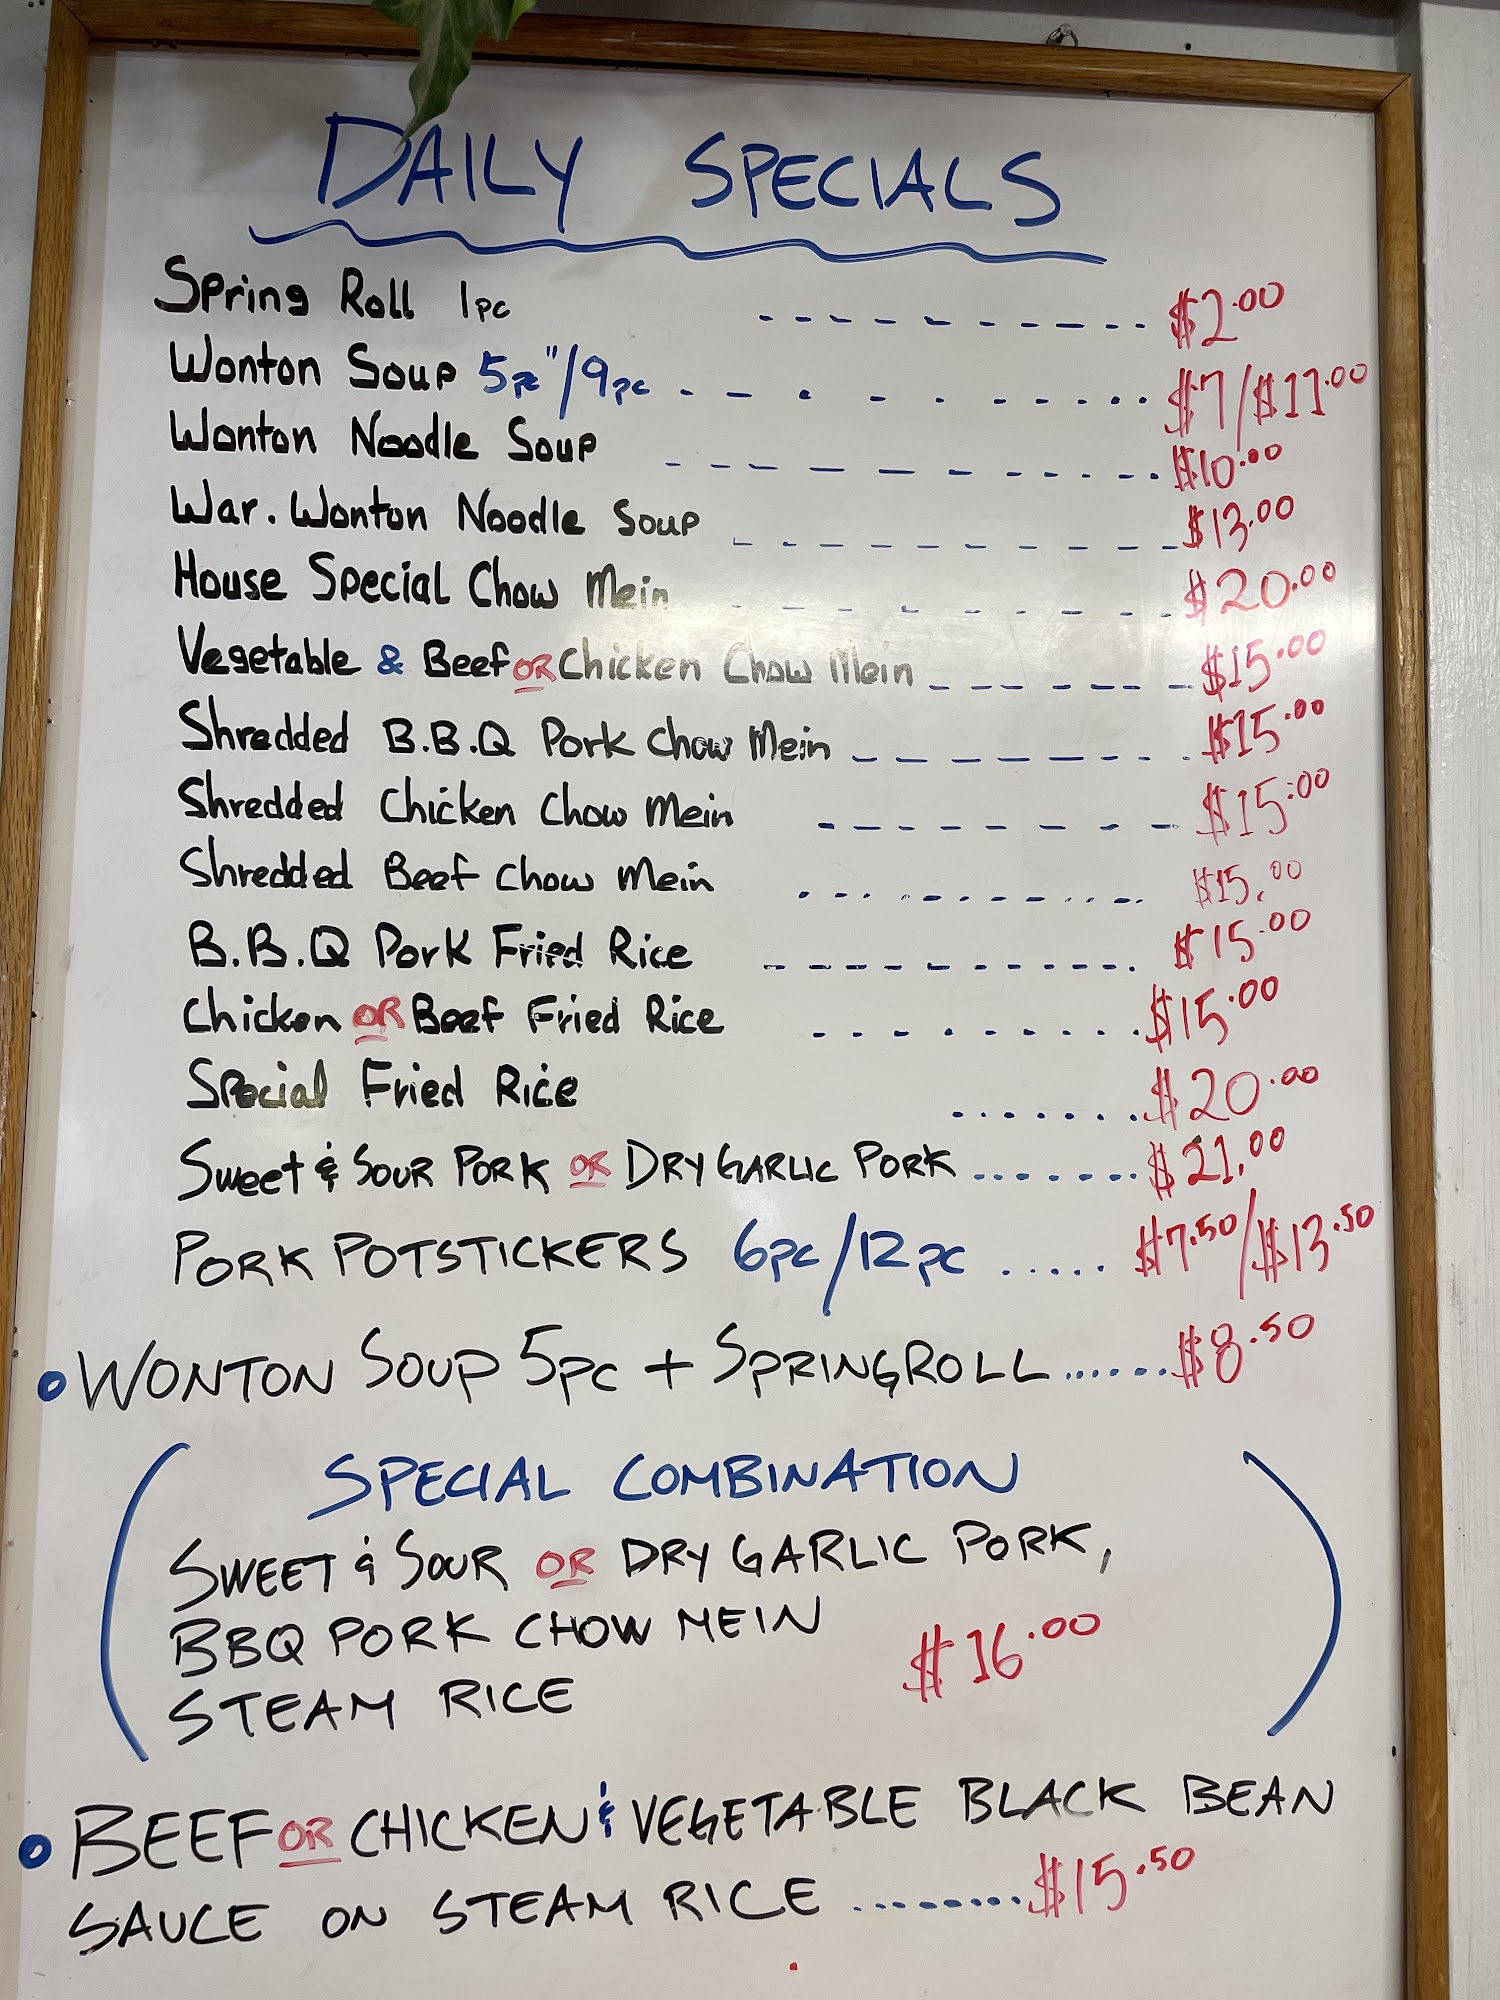 DAILY SPECIALS
Spring Roll 1pc --------- $2.00
Wonton Soup 5pc"/9pc - - . - . - ..... $7/$11.00
Wonton Noodle Soup ----------- $10.00
War. Wonton Noodle Soup ---------- $13.00
House Special Chow Mein --------- $20.00
Vegetable & Beef OR Chicken Chow Mein ------- $15.00
Shredded B.B.Q Pork Chow Mein -------- $15.00
Shredded Chicken Chow Mein --------- $15.00
Shredded Beef Chow Mein .......... $15.00
B.B.Q Pork Fried Rice ---------- $15.00
Chicken OR Beef Fried Rice ......... $15.00
Special Fried Rice ....... $20.00
Sweet & SOUR PORK OR DRY GARLIC PORK ....... $21.00
PORK POTSTICKERS 6pc/12pc ..... $7.50/$13.50
• WONTON SOUP 5pc + SPRINGROLL ...... $8.50
SPECIAL COMBINATION
SWEET & SOUR OR DRY GARLIC PORK,
BBQ PORK CHOW MEIN
$16.00
STEAM RICE
• BEEF OR CHICKEN & VEGETABLE BLACK BEAN
SAUCE ON STEAM RICE ........ $15.50